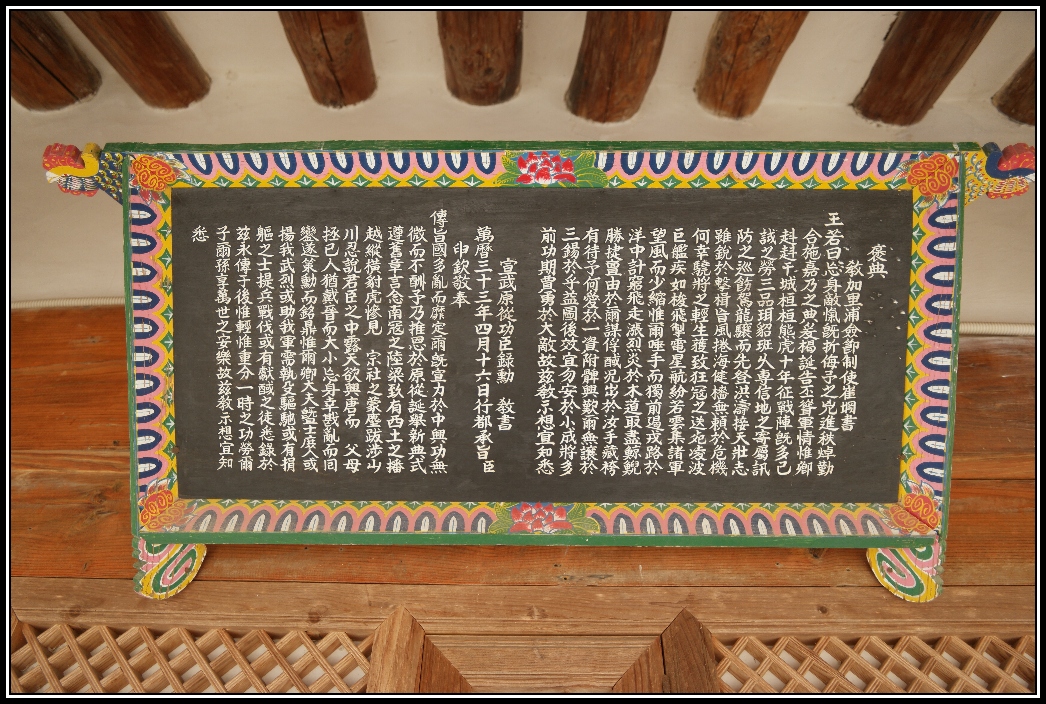 褒典
敎加里浦僉節制使崔堈書
王若曰忘身敵愾旣折侮予之兇進秩焯勤
合施嘉乃之典爰揚誕告丕聳軍情惟卿
赳赳干城桓桓熊虎十年征戰陣旣多己
試之勞三品玥貂班乂專信地之寄屬訊
防之巡飭駕龍驤而先登洪濤接天壯志
雖銳於擊楫盲風捲海徒櫓無賴於危機
何幸驍將之輕生薩致狂寇之送死凌波
巨艦疾如梭飛掣電星航紛若雲集諸軍
望風而少縮惟爾唾手而獨前邊或路於
洋中計窮飛走漁烈炎於木道取盡鯨鯢
勝捷亶由於爾謀俘馘況出於汝手藏袴
有待予何愛於一資附髀興歎爾無讓於
三錫於乎益圖後效宜勿安於小成將多
前功期賈勇於大敵故玆敎示想宜知悉
宣武原從功臣錄勳 敎書
萬曆三十三年四月十六日行都承旨臣
印欽敬奉
傳旨國多亂而靡定爾旣宣力於中興功無
微而不酬予乃推恩於原從誕擧新典式
遵舊章言念南寇之陸梁致有西土之播
越縱橫豺虎慘見 宗社之蒙塵跋涉山
川忍說君臣之中露天欲興唐而 父母
拯己人猶戴晉而大小忘身幸戡亂而回
鑾遂策勳而銘鼎惟爾卿大夫曁士庶人或
揚我武烈或助我軍需執殳驅馳或有捐
軀之士提兵戰伐或有獻馘之徒悉錄於
玆永傳于後惟輕惟重分一時之功勞爾
子爾孫享萬世之安樂故玆敎示想宜知
悉